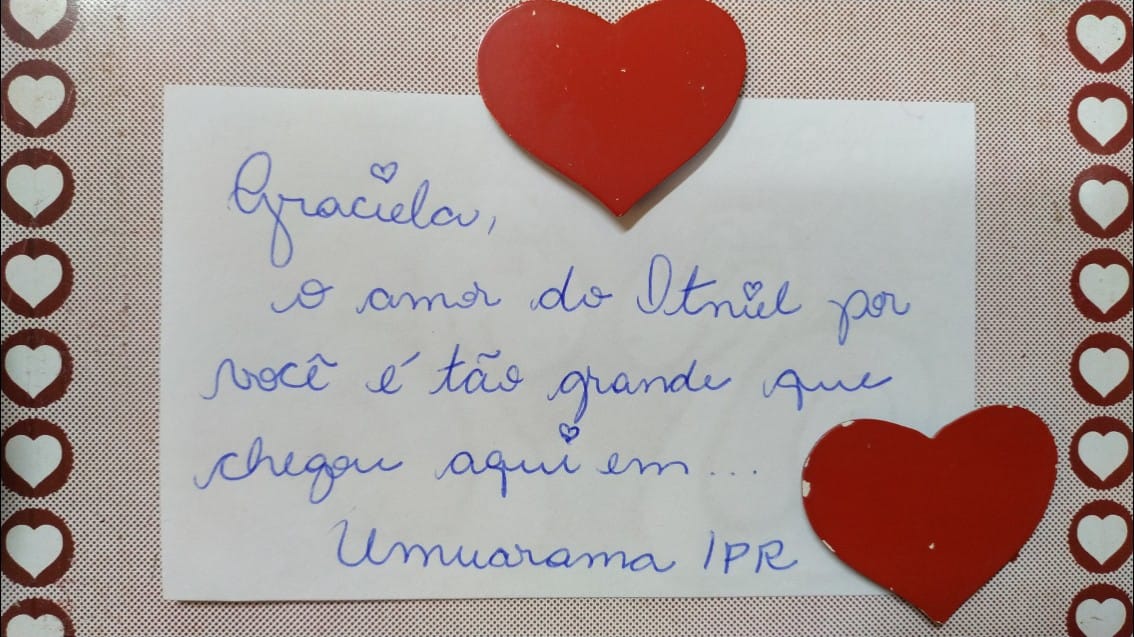 Graciela,
o amor do Otniel por
você é tão grande que
chegou aqui em...
Umuarama/PR